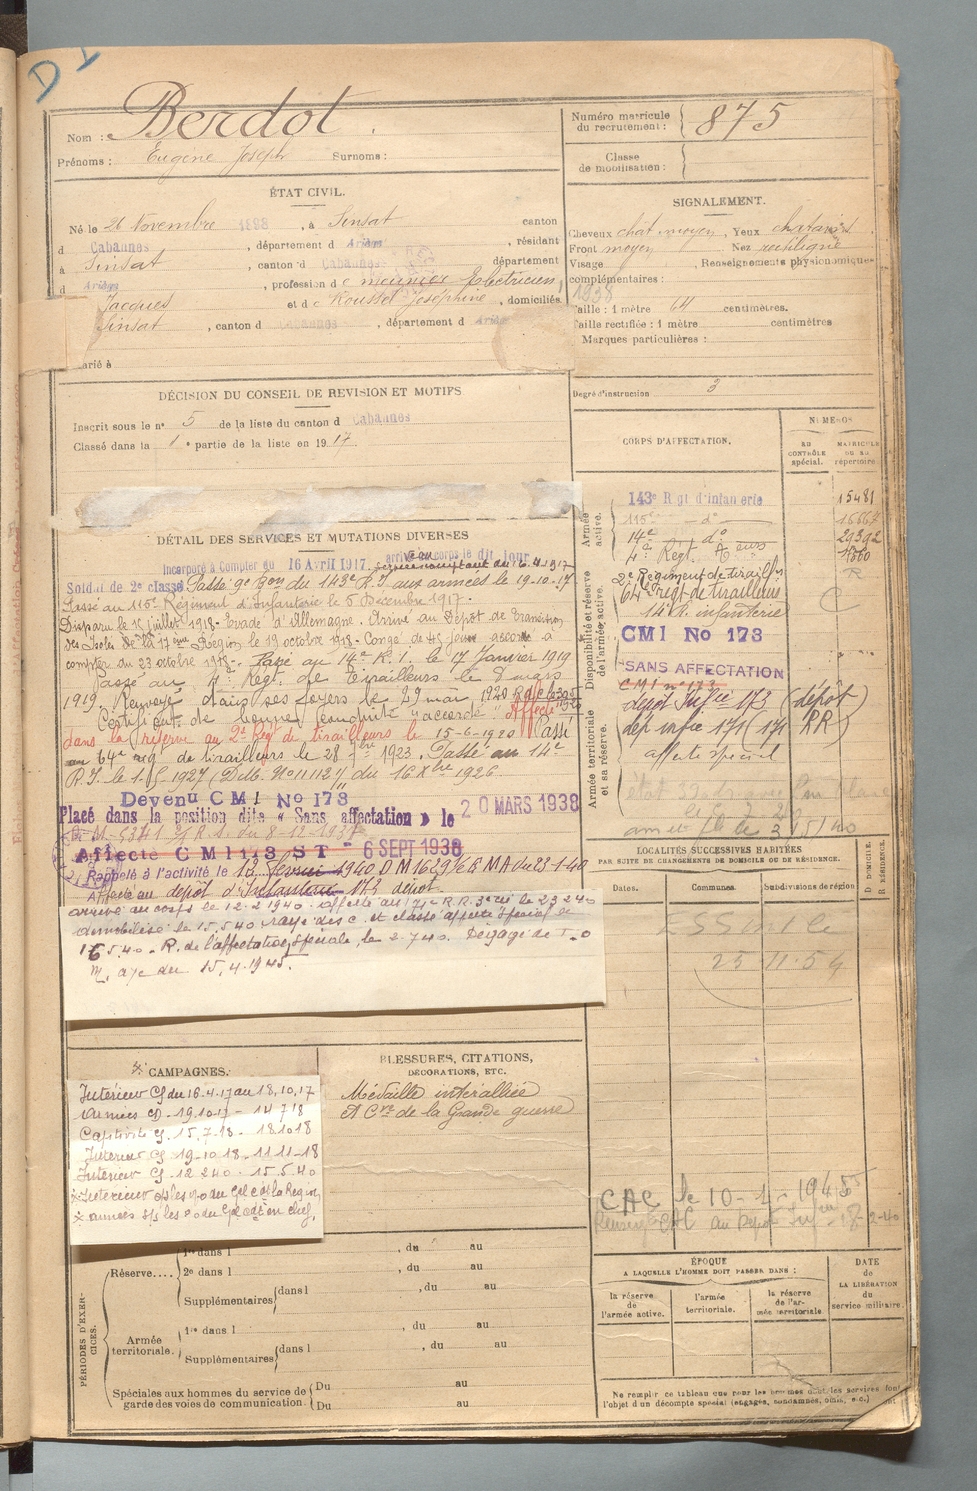 D 1
Nom : Berdot
Prénoms : Eugène Joseph Surnoms :
Numéro matricule du recrutement : 875
Classe de mobilisation :
ÉTAT CIVIL.
Né le 26 Novembre 1898, à Sinsat canton
d Cabannes, département d Ariège, résidant
à Sinsat, canton d Cabannes département
d Ariège, profession de meunier Electricien,
Jacques et de Roustet Joséphine, domiciliés
Sinsat, canton d Cabannes, département d Ariège
arié à
SIGNALEMENT.
Cheveux chât moyen, Yeux
Front moyen Nez rectiligne
Visage, Renseignements physionomiques
complémentaires :
1938
Taille : 1 mètre 64 centimètres.
Taille rectifiée : 1 mètre centimètres
Marques particulières :
Degré d'instruction 3
DÉCISION DU CONSEIL DE REVISION ET MOTIFS
Inscrit sous le n° 5 de la liste du canton d Cabannes
Classé dans la 1e partie de la liste en 1917
CORPS D'AFFECTATION.
NUMÉROS
AU CONTRÔLE spécial.
MATRICULE OU AU répertoire.
Armée active.
143e Rgt d'infanterie 15481
115e do 16667
14e do 29392
4e Régt. 1860
Disponibilité et réserve de l'armée active.
2e Régiment de tiraill
64e régt de tirailleurs
14e R. infanterie
CMI No 173
SANS AFFECTATION
CMI n° 173
Armée territoriale et sa réserve.
dépôt Inf 173 (dépôt)
dép infie 171 (171 RR)
affecté spécial
DÉTAIL DES SERVICES ET MUTATIONS DIVERSES
Incorporé à Compter du 16 Avril 1917. arrivé au corps le dit jour
Soldat de 2e classe Passé 9e Bon du 143e R.I. aux armées le 19-10-17.
Passé au 115e Régiment d'Infanterie le 5 Décembre 1917.
Disparu le 15 juillet 1918 - Evadé d'Allemagne. Arrivé au Dépôt de Transition
des Isolés de la 17ème Région le 19 octobre 1918 - Congé de 45 jours accordé à
compter du 23 octobre 1918. Passé au 14e R.I. le 17 Janvier 1919
Passé au 4e Régt. de Tirailleurs le 8 mars
1919 Renvoyé dans ses foyers le 29 mai 1920
Certificat de bonne conduite "accordé" Affecté
dans la réserve au 2e Regt de tirailleurs le 15-6-1920 Passé
au 64e rég de tirailleurs le 28 7bre 1923. Passé au 14e
R.I. le 1. 1927 (Délb. No 11112) du 16 Xbre 1926
Devenu CMI No 173
Placé dans la position dite « Sans affectation » le 20 MARS 1938
du 8-12-1937
Affecté CMI 173 ST - 6 SEPT 1938
Rappelé à l'activité le 12 février 1940 DM 1629 EMA du 23-1-40
Affecté au dépôt d'Infanterie 173 dépôt.
arrivé au corps le 12-2-1940. affecté au 171e R.R. 3e cie le 23 2 40
démobilisé le 15.5.40 rayé des c. et classé affecté spécial le
16 5.40. R. de l'affectation spéciale le 2.7.40. Dégagé de
15.4.1945.
LOCALITÉS SUCCESSIVES HABITÉES
PAR SUITE DE CHANGEMENTS DE DOMICILE OU DE RÉSIDENCE.
Dates. Communes. Subdivisions de région D. DOMICILE. R. RÉSIDENCE.
25 11.54
CAMPAGNES.
Intérieur CS du 16-4-17 au 18.10.17
Armées CD - 19.10.17 - 14 7 18
Captivité CS. 15.7-18 - 18 10 18
Intérieur CS 19-10-18 - 11-11-18
Intérieur CS - 12 2 40 - 15.5.40
Intérieur s/s les o du Gal Cdt la Région,
armées s/s les o du Gal Cdt en chef.
BLESSURES, CITATIONS, DÉCORATIONS, ETC.
Médaille interalliée
et Cve de la Grande guerre
CAC le 10-4-1945
PÉRIODES D'EXERCICES.
Réserve.... 1re dans l, du au
2e dans l, du au
Supplémentaires dans l, du au
Armée territoriale. 1re dans l, du au
Supplémentaires dans l, du au
Spéciales aux hommes du service de garde des voies de communication. Du au
Du au
ÉPOQUE
A LAQUELLE L'HOMME DOIT PASSER DANS :
la réserve de l'armée active.
l'armée territoriale.
la réserve de l'armée territoriale.
DATE DE LA LIBÉRATION du service militaire.
Ne remplir ce tableau que pour les hommes dont les services font
l'objet d'un décompte spécial (engagés, condamnés, omis, e.c.)